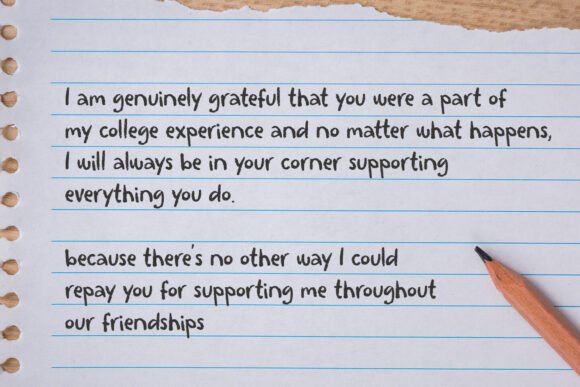 I am genuinely grateful that you were a part of
my college experience and no matter what happens,
I will always be in your corner supporting
everything you do.
because there's no other way I could
repay you for supporting me throughout
our friendships